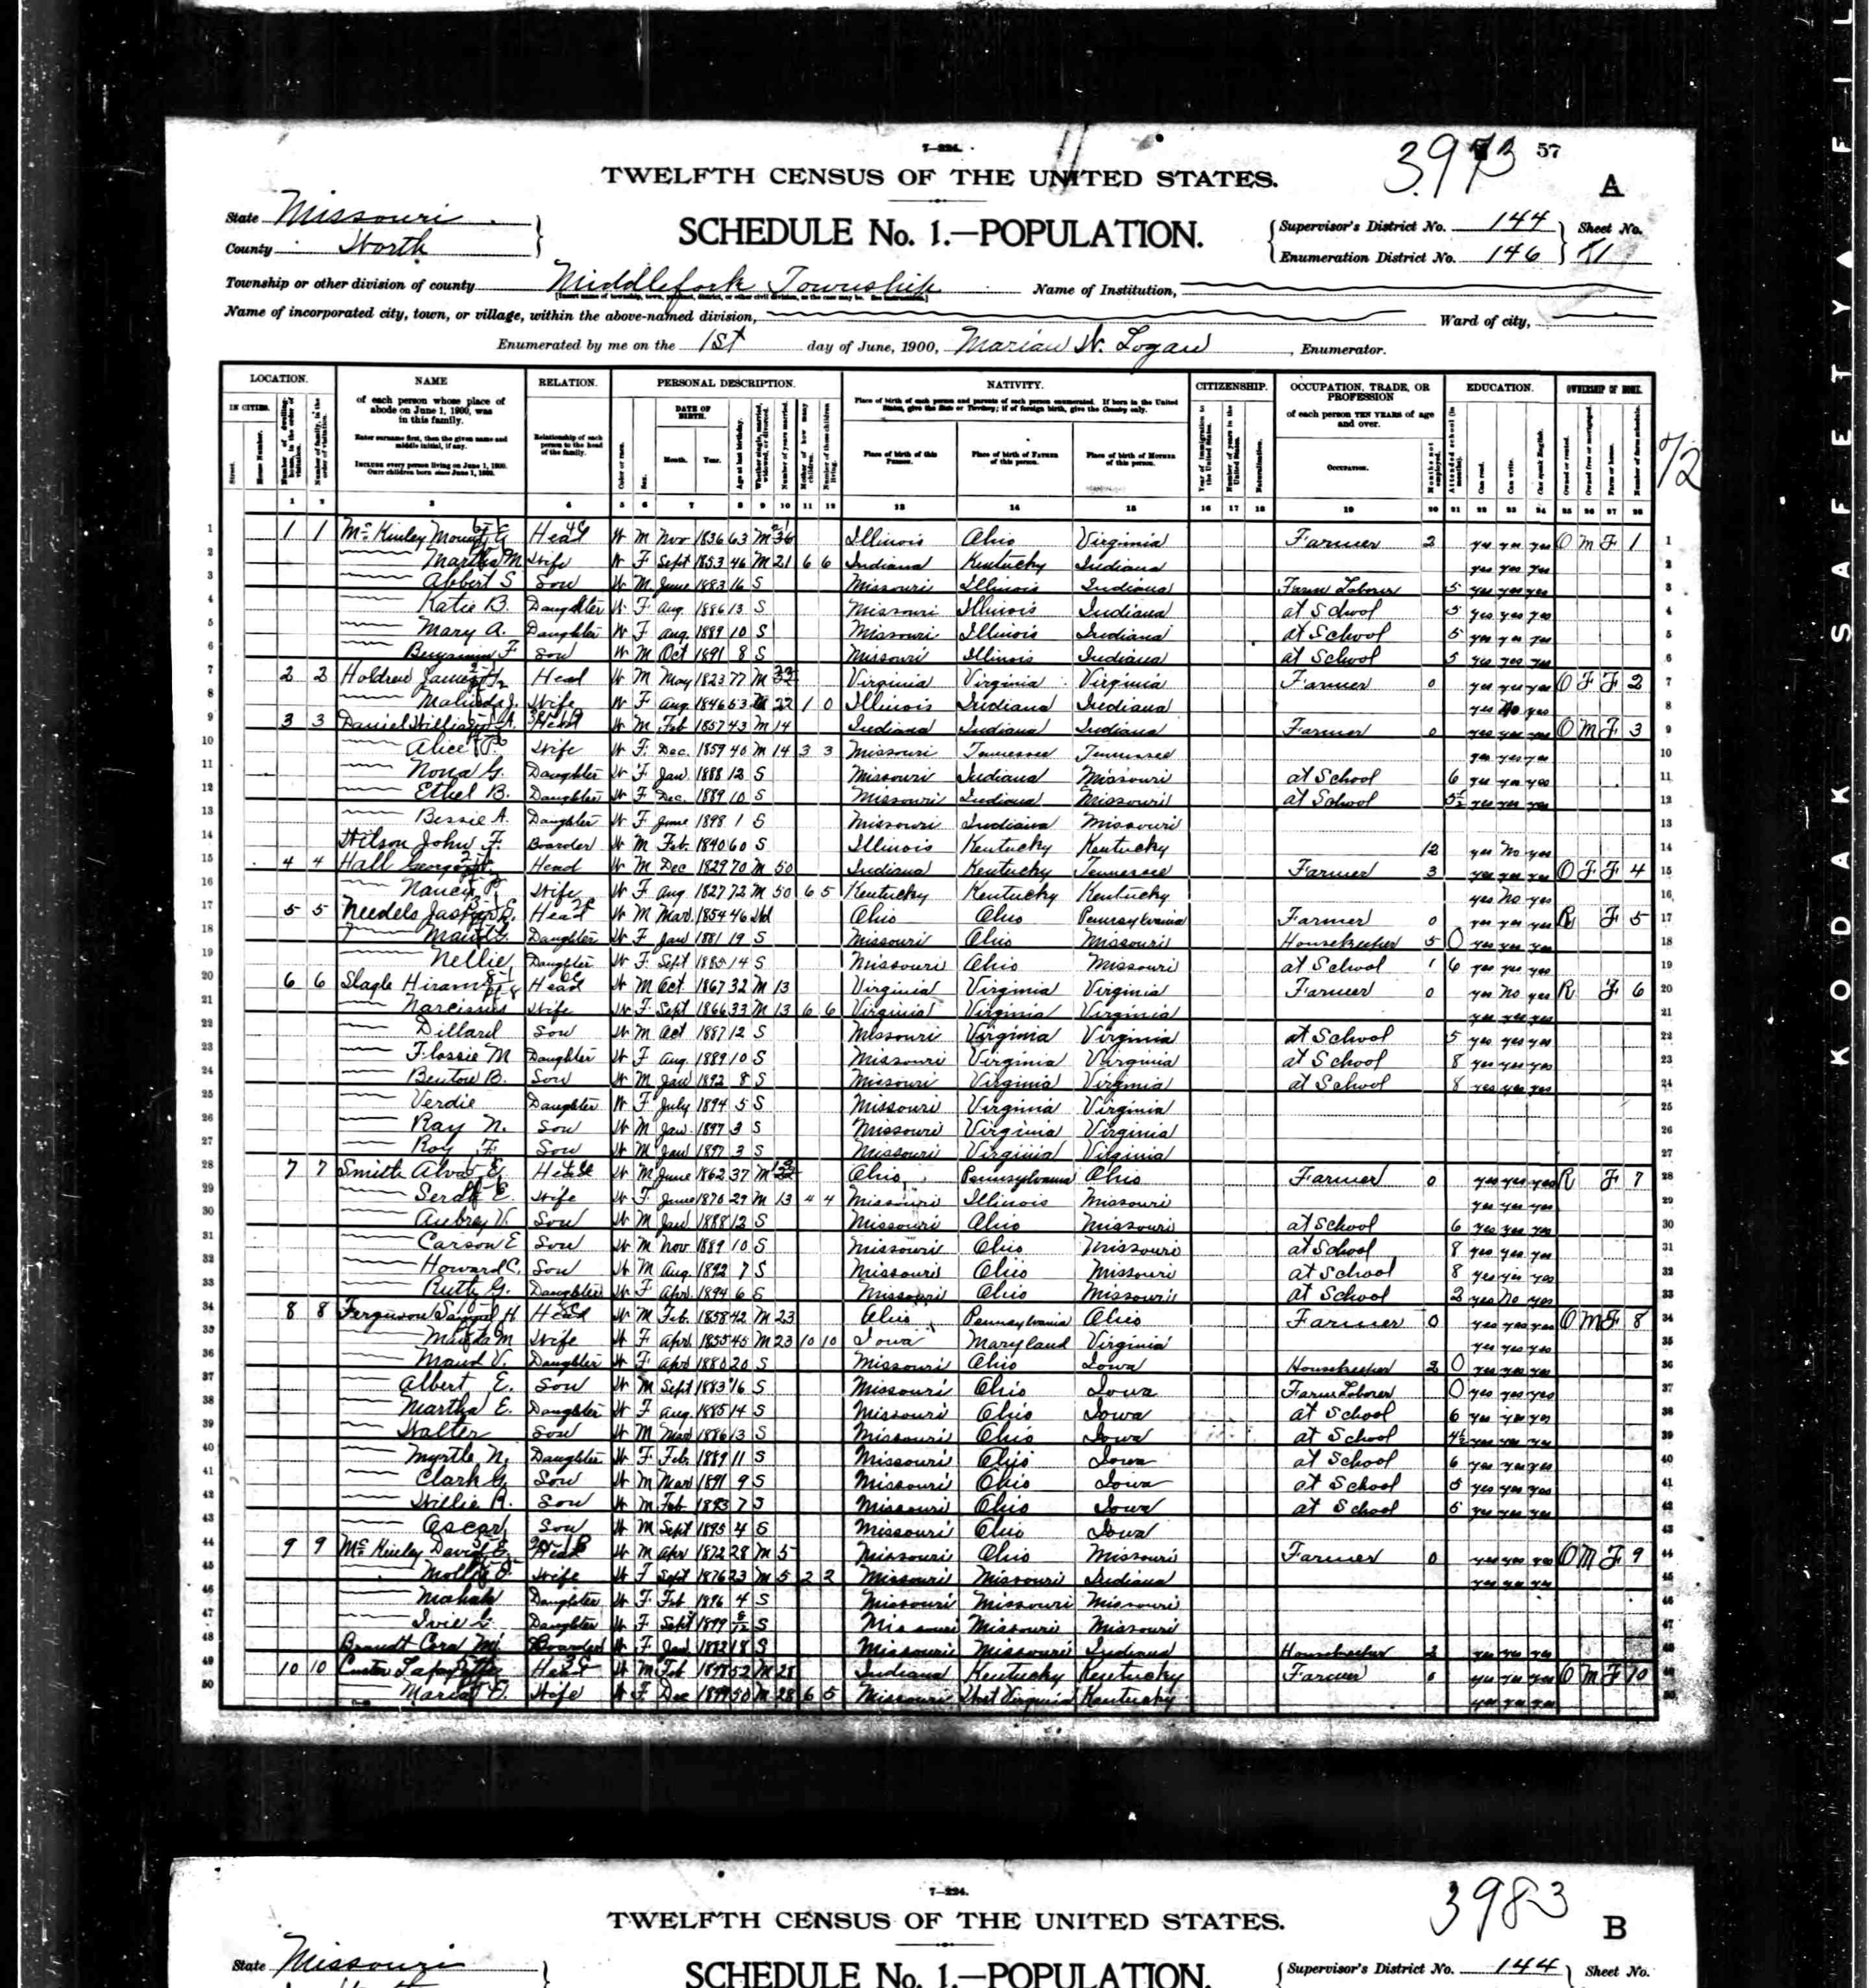 3973 57
7—224.
TWELFTH CENSUS OF THE UNITED STATES.
A
State Missouri
County Worth
SCHEDULE No. 1.—POPULATION.
Supervisor's District No. 144 Sheet No.
Enumeration District No. 146 1
Township or other division of county Middlefork Township Name of Institution,
Name of incorporated city, town, or village, within the above-named division, Ward of city,
Enumerated by me on the 1st day of June, 1900, Marian W. Logan, Enumerator.
LOCATION. NAME RELATION. PERSONAL DESCRIPTION. NATIVITY. CITIZENSHIP. OCCUPATION, TRADE, OR PROFESSION EDUCATION. OWNERSHIP OF HOME.
IN CITIES. of each person whose place of abode on June 1, 1900, was in this family. DATE OF BIRTH. of each person TEN YEARS of age and over.
Enter surname first, then the given name and middle initial, if any. Relationship of each person to the head of the family.
INCLUDE every person living on June 1, 1900. OMIT children born since June 1, 1900.
Street. House Number. Color or race. Sex. Month. Year. Place of birth of this PERSON. Place of birth of FATHER of this person. Place of birth of MOTHER of this person. Naturalization. OCCUPATION. Can read. Can write. Can speak English.
1 2 3 4 5 6 7 8 9 10 11 12 13 14 15 16 17 18 19 20 21 22 23 24 25 26 27 28
1 1 1 McKinley Head W M Nov 1836 63 M Illinois Ohio Virginia Farmer 2 yes yes yes O M F 1 1
2 Martha M Wife W F Sept 1853 46 M 21 6 6 Indiana Kentucky Indiana yes yes yes 2
3 Albert S Son W M June 1883 16 S Missouri Illinois Indiana Farm Laborer 5 yes yes yes 3
4 Katie B. Daughter W F Aug 1886 13 S Missouri Illinois Indiana at School 5 yes yes yes 4
5 Mary A. Daughter W F Aug 1889 10 S Missouri Illinois Indiana at School 5 yes yes yes 5
6 Benjamin F Son W M Oct 1891 8 S Missouri Illinois Indiana at School 5 yes yes yes 6
7 2 2 Holdren James Head W M May 1823 77 M Virginia Virginia Virginia Farmer 0 yes yes yes O F F 2 7
8 Malinda J. Wife W F Aug 1846 53 M 22 1 0 Illinois Indiana Indiana yes No yes 8
9 3 3 Daniel William A. Head W M Feb 1857 43 M 14 Indiana Indiana Indiana Farmer 0 yes yes yes O M F 3 9
10 Alice Wife W F Dec. 1859 40 M 14 3 3 Missouri Tennessee Tennessee yes yes yes 10
11 Nona G. Daughter W F Jan 1888 12 S Missouri Indiana Missouri at School 6 yes yes yes 11
12 Ethel B. Daughter W F Dec. 1889 10 S Missouri Indiana Missouri at School 5½ yes yes yes 12
13 Bessie A. Daughter W F June 1898 1 S Missouri Indiana Missouri 13
14 Wilson John F. Boarder W M Feb 1840 60 S Illinois Kentucky Kentucky 12 yes No yes 14
15 4 4 Hall George Head W M Dec 1829 70 M 50 Indiana Kentucky Tennessee Farmer 3 yes yes yes O F F 4 15
16 Nancy P. Wife W F Aug 1827 72 M 50 6 5 Kentucky Kentucky Kentucky yes No yes 16
17 5 5 Needels Jasper E. Head W M Mar 1854 46 Wd Ohio Ohio Pennsylvania Farmer 0 yes yes yes R F 5 17
18 Daughter W F Jan 1881 19 S Missouri Ohio Missouri Housekeeper 5 0 yes yes yes 18
19 Nellie Daughter W F Sept 1885 14 S Missouri Ohio Missouri at School 1 6 yes yes yes 19
20 6 6 Slagle Hiram Head W M Oct 1867 32 M 13 Virginia Virginia Virginia Farmer 0 yes No yes R F 6 20
21 Narcissus Wife W F Sept 1866 33 M 13 6 6 Virginia Virginia Virginia yes yes yes 21
22 Dillard Son W M Oct 1887 12 S Missouri Virginia Virginia at School 5 yes yes yes 22
23 Flossie M Daughter W F Aug 1889 10 S Missouri Virginia Virginia at School 8 yes yes yes 23
24 Benton B. Son W M Jan 1892 8 S Missouri Virginia Virginia at School 8 yes yes yes 24
25 Verdie Daughter W F July 1894 5 S Missouri Virginia Virginia 25
26 Ray N. Son W M Jan 1897 3 S Missouri Virginia Virginia 26
27 Roy F. Son W M Jan 1897 3 S Missouri Virginia Virginia 27
28 7 7 Smith Alva E. Head W M June 1862 37 M Ohio Pennsylvania Ohio Farmer 0 yes yes yes R F 7 28
29 E. Wife W F June 1870 29 M 13 4 4 Missouri Illinois Missouri yes yes yes 29
30 Aubrey V. Son W M Jan 1888 12 S Missouri Ohio Missouri at School 6 yes yes yes 30
31 Carson E Son W M Nov 1889 10 S Missouri Ohio Missouri at School 8 yes yes yes 31
32 Howard C. Son W M Aug 1892 7 S Missouri Ohio Missouri at School 8 yes yes yes 32
33 Ruth G. Daughter W F Apr 1894 6 S Missouri Ohio Missouri at School 2 yes No yes 33
34 8 8 Ferguson Samuel H Head W M Feb. 1858 42 M 23 Ohio Pennsylvania Ohio Farmer 0 yes yes yes O M F 8 34
35 M Wife W F Apr 1855 45 M 23 10 10 Iowa Maryland Virginia yes yes yes 35
36 Maud V. Daughter W F Apr 1880 20 S Missouri Ohio Iowa Housekeeper 2 0 yes yes yes 36
37 Albert E. Son W M Sept 1883 16 S Missouri Ohio Iowa Farm Laborer 0 yes yes yes 37
38 Martha E. Daughter W F Aug. 1885 14 S Missouri Ohio Iowa at School 6 yes yes yes 38
39 Walter Son W M Mar 1886 13 S Missouri Ohio Iowa at School 4½ yes yes yes 39
40 Myrtle N. Daughter W F Feb 1889 11 S Missouri Ohio Iowa at School 6 yes yes yes 40
41 Clark G. Son W M Mar 1891 9 S Missouri Ohio Iowa at School 5 yes yes yes 41
42 Willie R. Son W M Feb 1893 7 S Missouri Ohio Iowa at School 5 yes yes yes 42
43 Oscar Son W M Sept 1895 4 S Missouri Ohio Iowa 43
44 9 9 McKinley David E. Head W M Apr 1872 28 M 5 Missouri Ohio Missouri Farmer 0 yes yes yes O M F 9 44
45 Mollie Wife W F Sept 1876 23 M 5 2 2 Missouri Missouri Indiana yes yes yes 45
46 Daughter W F Feb 1896 4 S Missouri Missouri Missouri 46
47 Daughter W F Sept 1899 S Missouri Missouri Missouri 47
48 Brandt Cora M. Boarder W F Jan 1882 18 S Missouri Missouri Indiana Housekeeper yes yes yes 48
49 10 10 Custer Head W M Feb 52 M 28 Indiana Kentucky Kentucky Farmer yes yes yes O M F 10 49
50 Wife W F Dec 50 M 28 6 5 Missouri West Virginia Kentucky yes yes yes 50
7—224.
3983
TWELFTH CENSUS OF THE UNITED STATES.
B
State Missouri
SCHEDULE No. 1.—POPULATION.
Supervisor's District No. 144 Sheet No.
KODAK SAFETY FIL